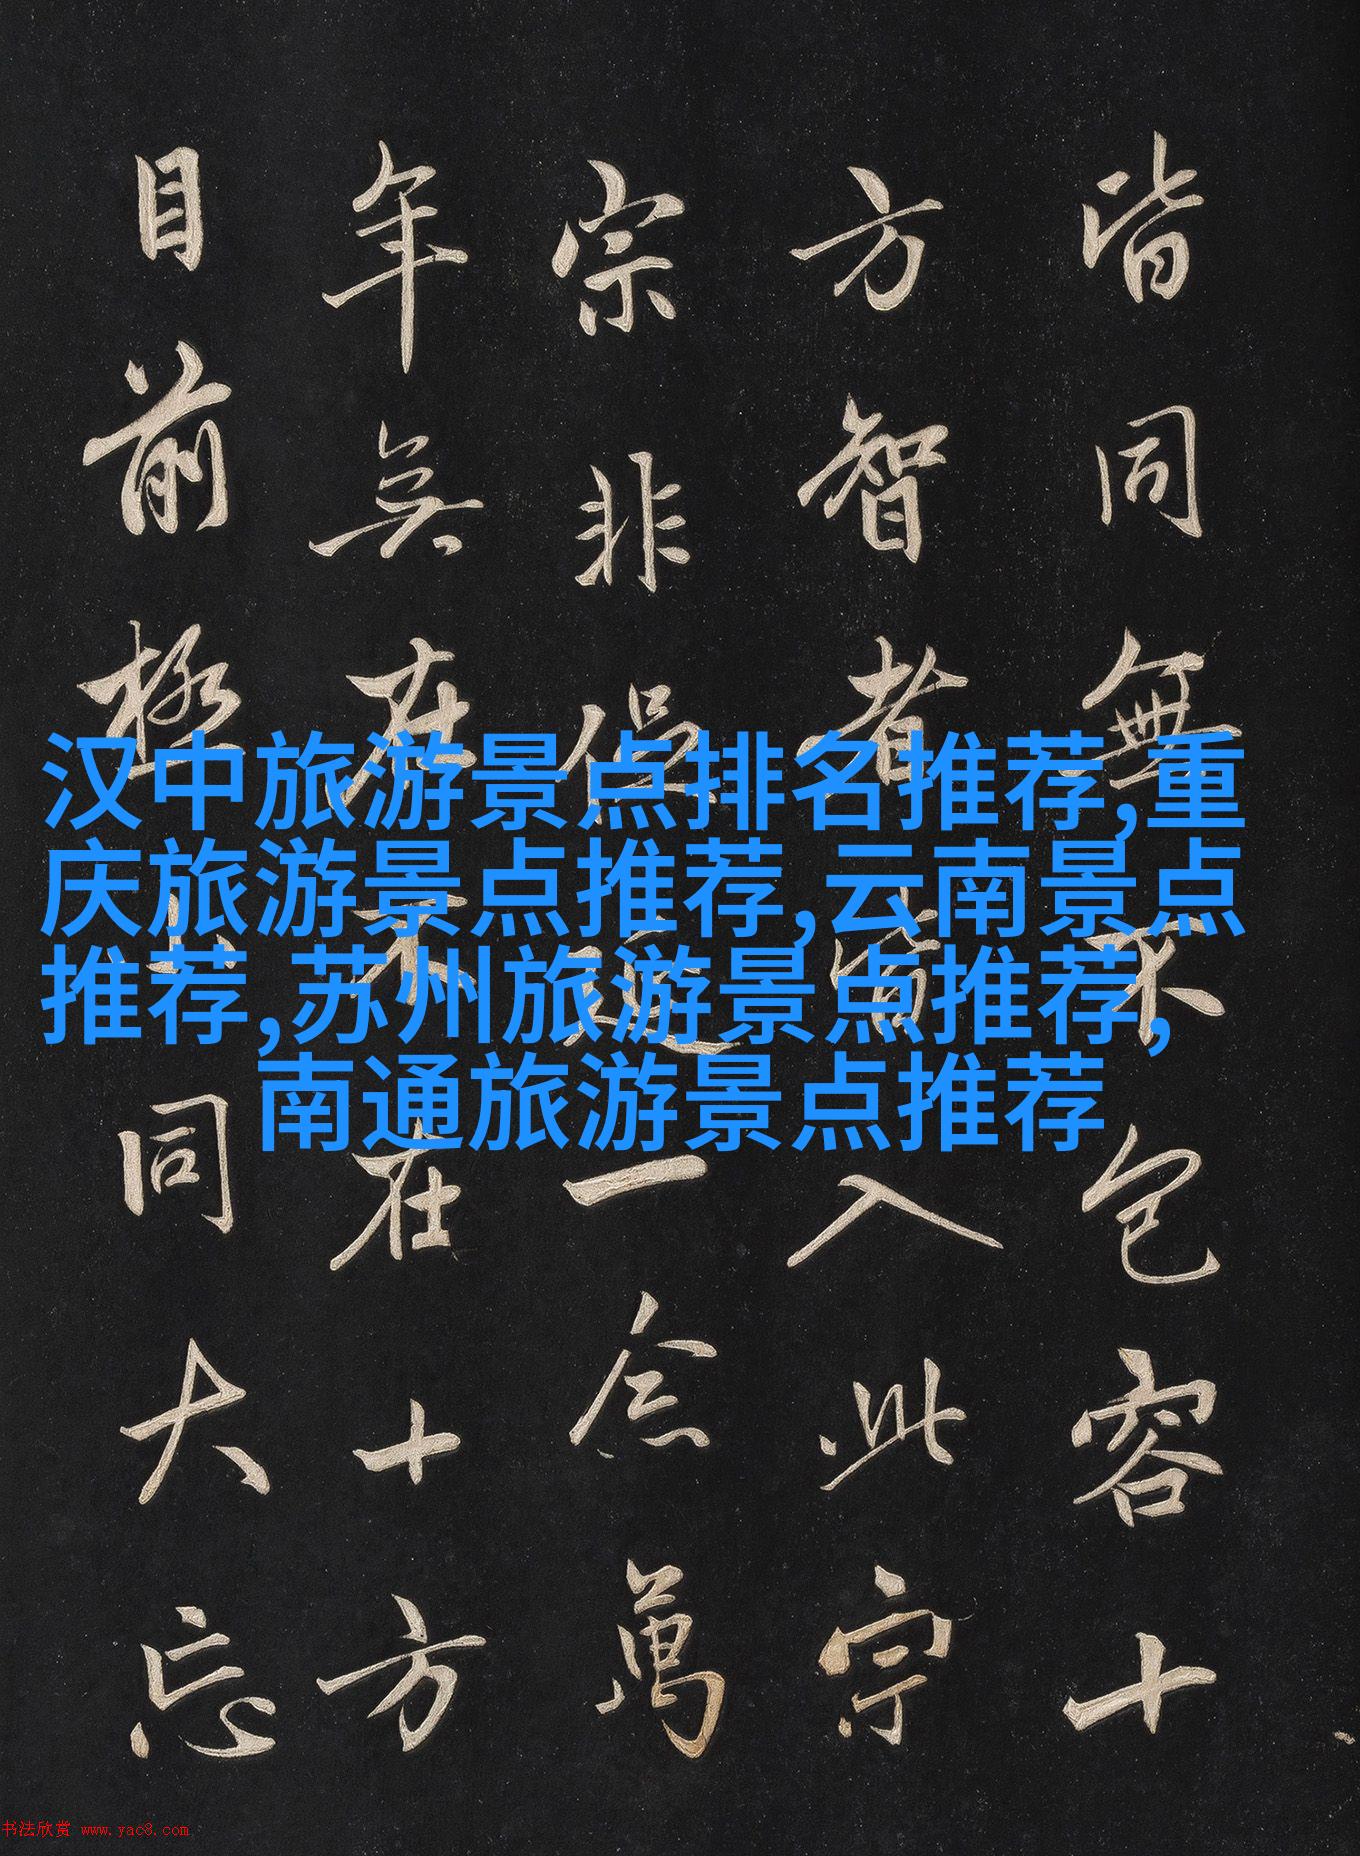 皆同無不包容十
方智者皆入此宗
宗非促延一念萬
年無在不在十方
目前極小同大忘
汉中旅游景点排名推荐,重
庆旅游景点推荐,云南景点
推荐,苏州旅游景点推荐,
南通旅游景点推荐
书法欣赏 www.yac8.com